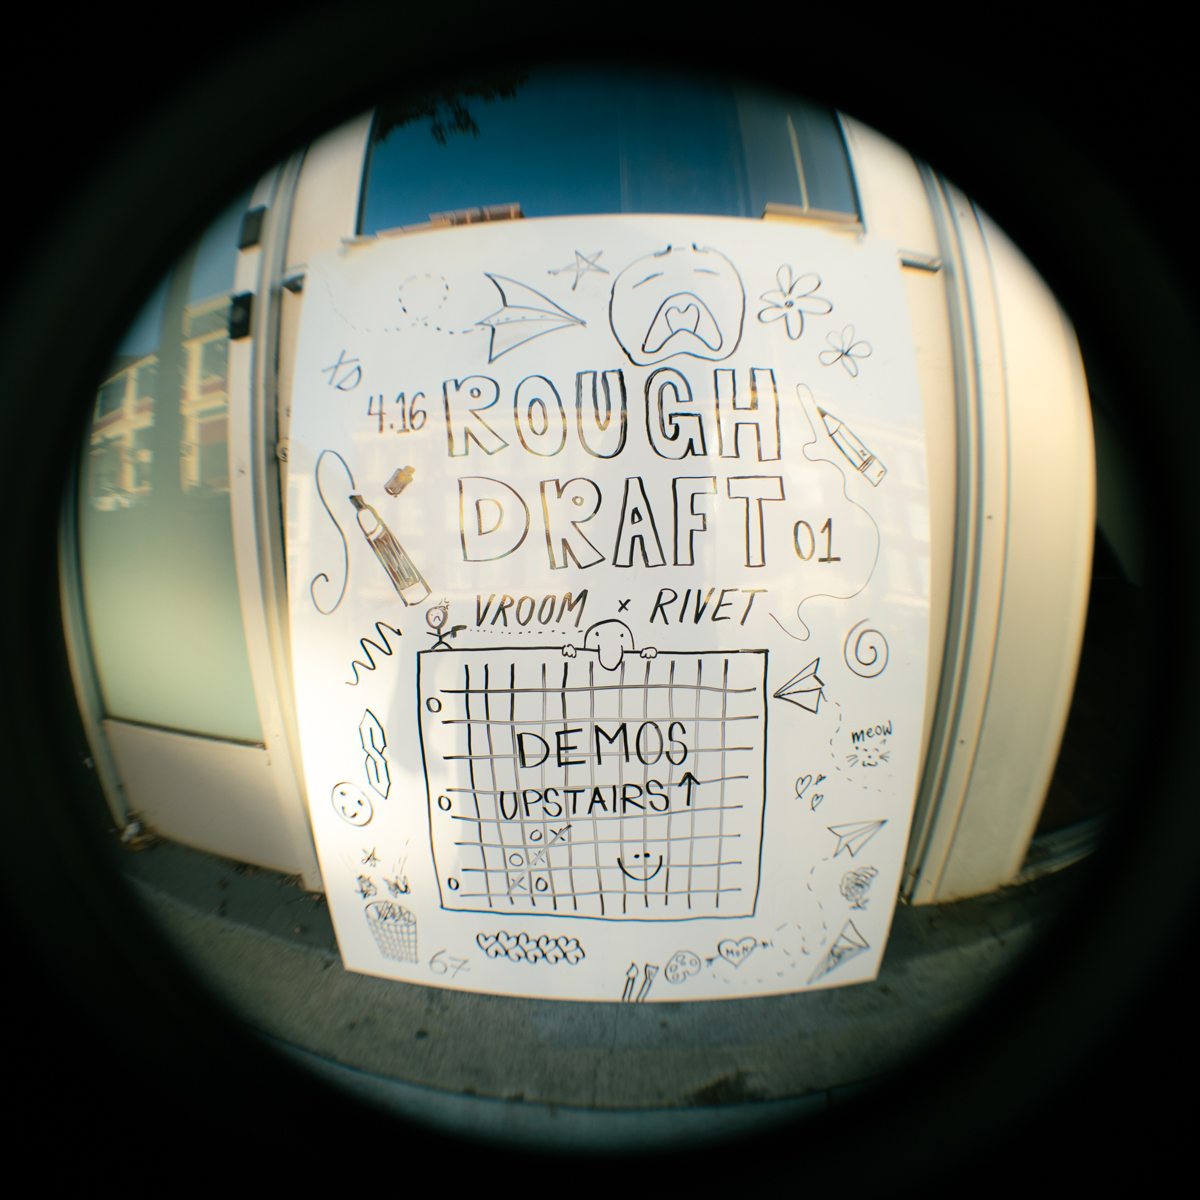 4.16 ROUGH
DRAFT 01
VROOM x RIVET
DEMOS
UPSTAIRS↑
meow
MOM
67